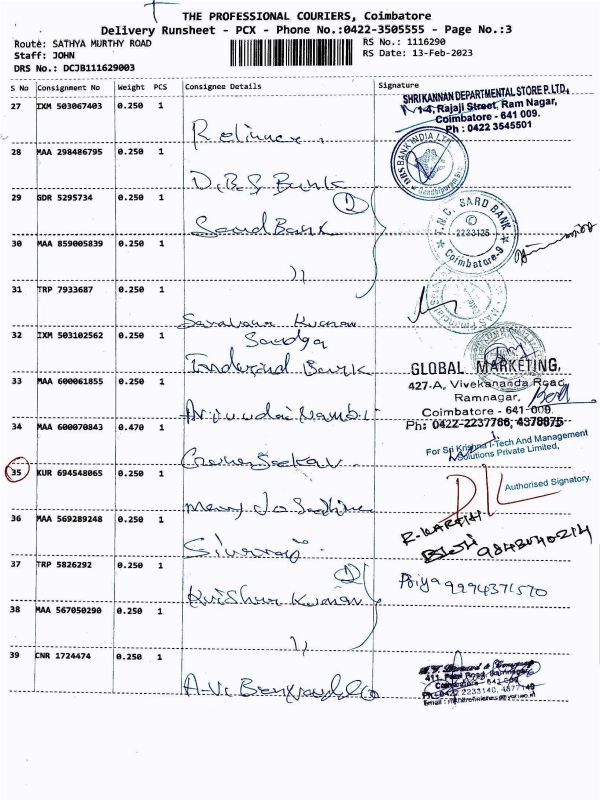 THE PROFESSIONAL COURIERS, Coimbatore
Delivery Runsheet - PCX - Phone No.:0422-3505555 - Page No.:3
Route: SATHYA MURTHY ROAD
RS No.: 1116290
Staff: JOHN
RS Date: 13-Feb-2023
DRS No.: DCJB111629003
S No Consignment No Weight PCS Consignee Details Signature
27 IXM 503067403 0.250 1
SHRI KANNAN DEPARTMENTAL STORE P. LTD.,
1-4, Rajaji Street, Ram Nagar,
Coimbatore - 641 009.
Ph : 0422 3545501
Reliance
28 MAA 298486795 0.250 1
DBS BANK INDIA LTD
D.B.S Bank
29 GDR 5295734 0.250 1
Sard Bank
T.N.C. SARD BANK
2233125
Coimbatore-9
30 MAA 859005839 0.250 1
31 TRP 7933687 0.250 1
Saravana Kumar
32 IXM 503102562 0.250 1
Bank
GLOBAL MARKETING,
427-A, Vivekananda Road,
Ramnagar,
Coimbatore - 641 009.
Ph: 0422-2237766, 4378875
33 MAA 600061855 0.250 1
34 MAA 600070843 0.470 1
For Sri Krishna I-Tech And Management
Solutions Private Limited,
Authorised Signatory.
35 KUR 694548065 0.250 1
DIL
36 MAA 569289248 0.250 1
R. KARTHI
9843040214
Sivaraj
37 TRP 5826292 0.250 1
Priya 9994371570
Krishna Kumar
38 MAA 567050290 0.250 1
39 CNR 1724474 0.250 1
A.V.